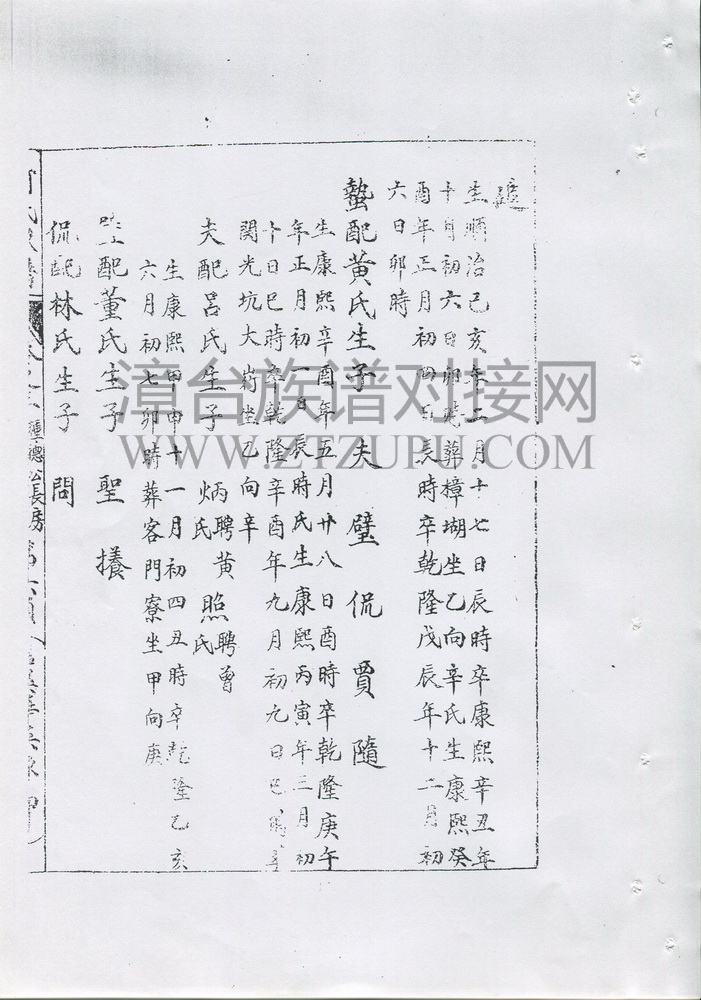 生順治己亥年二月十七日辰時卒康熙辛丑年
十月初六日卯時葬樟湖坐乙向辛氏生康熙癸
酉年正月初四日辰時卒乾隆戊辰年十二月初
六日卯時
蟄配黃氏生子 夫 璧 侃 賈 隨
生康熙辛酉年五月廿八日酉時卒乾隆庚午
年正月初一日辰時氏生康熙丙寅年二月初
十日巳時卒乾隆辛酉年九月初九日巳
関光坑大崎坐乙向辛
夫配呂氏生子 炳聘黃氏 照聘曾氏
生康熙甲申十一月初四丑時卒乾隆乙亥
六月初七卯時葬客門寮坐甲向庚
配董氏生子 聖 攁
侃配林氏生子 問
種德公長房
漳台族谱对接网
WWW.ZTZUPU.COM